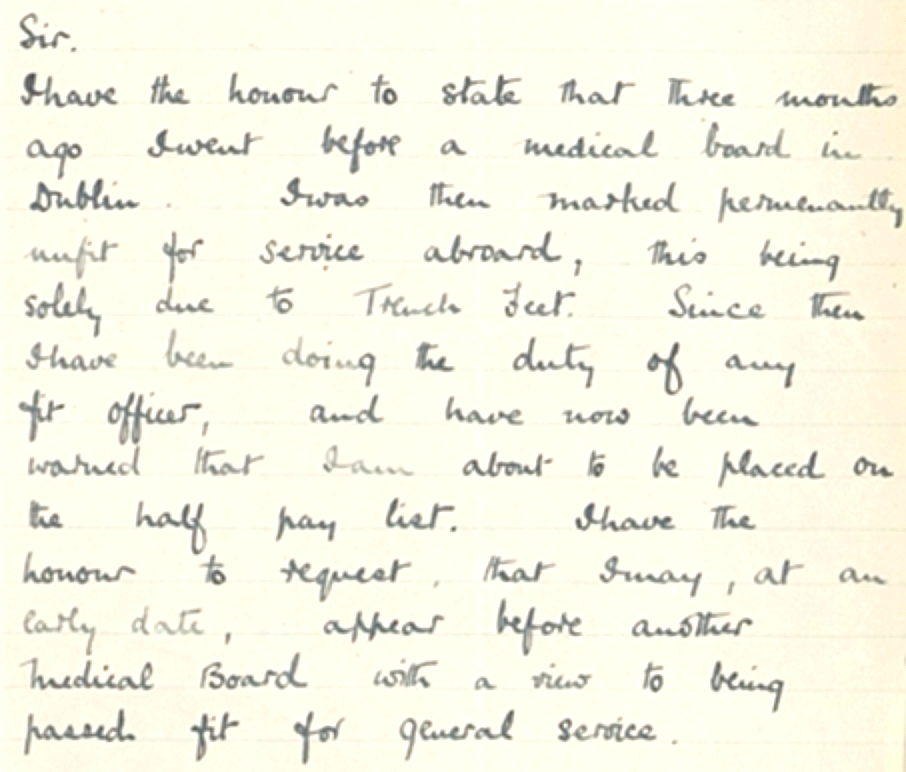 Sir.
I have the honour to state that three months
ago I went before a medical board in
Dublin. I was then marked permenantly
unfit for service abroad, this being
solely due to Trench Feet. Since then
I have been doing the duty of any
fit officer, and have now been
warned that I am about to be placed on
the half pay list. I have the
honour to request, that I may, at an
early date, appear before another
Medical Board with a view to being
passed fit for general service.